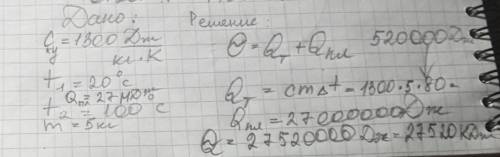 Дано:
C = 1300 Дж
ку кг·К
t₁ = 20°C
Qпл = 27 МДж
t₂ = 100°C
m = 5 кг
Решение:
Q = Qт + Qпл 520000 Дж
Qт = cm∆t = 1300·5·80 =
Qпл = 27000000 Дж
Q = 27520000 Дж = 27520 КДж